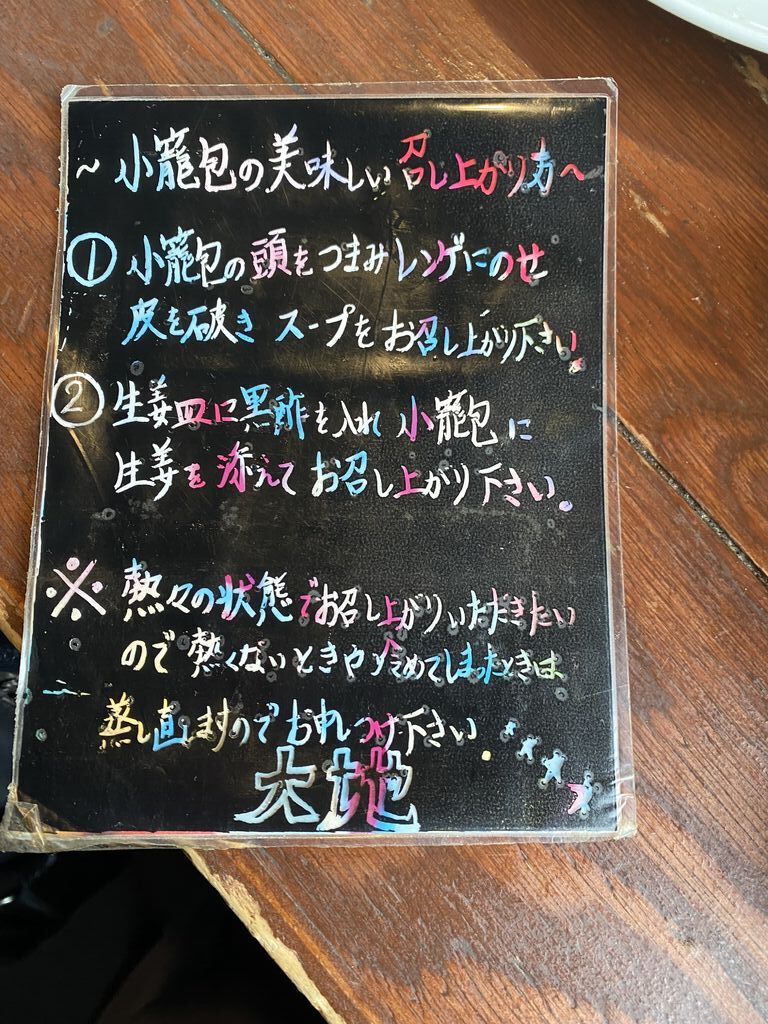 ～小籠包の美味しい召し上がり方～
① 小籠包の頭をつまみレンゲにのせ
皮を破き スープをお召し上がり下さい。
② 生姜皿に黒酢を入れ 小籠包に
生姜を添えて お召し上がり下さい。
※ 熱々の状態でお召し上がりいただきたい
ので熱くないときや冷めてしまったときは
蒸し直しますのでお申しつけ下さい.
大地